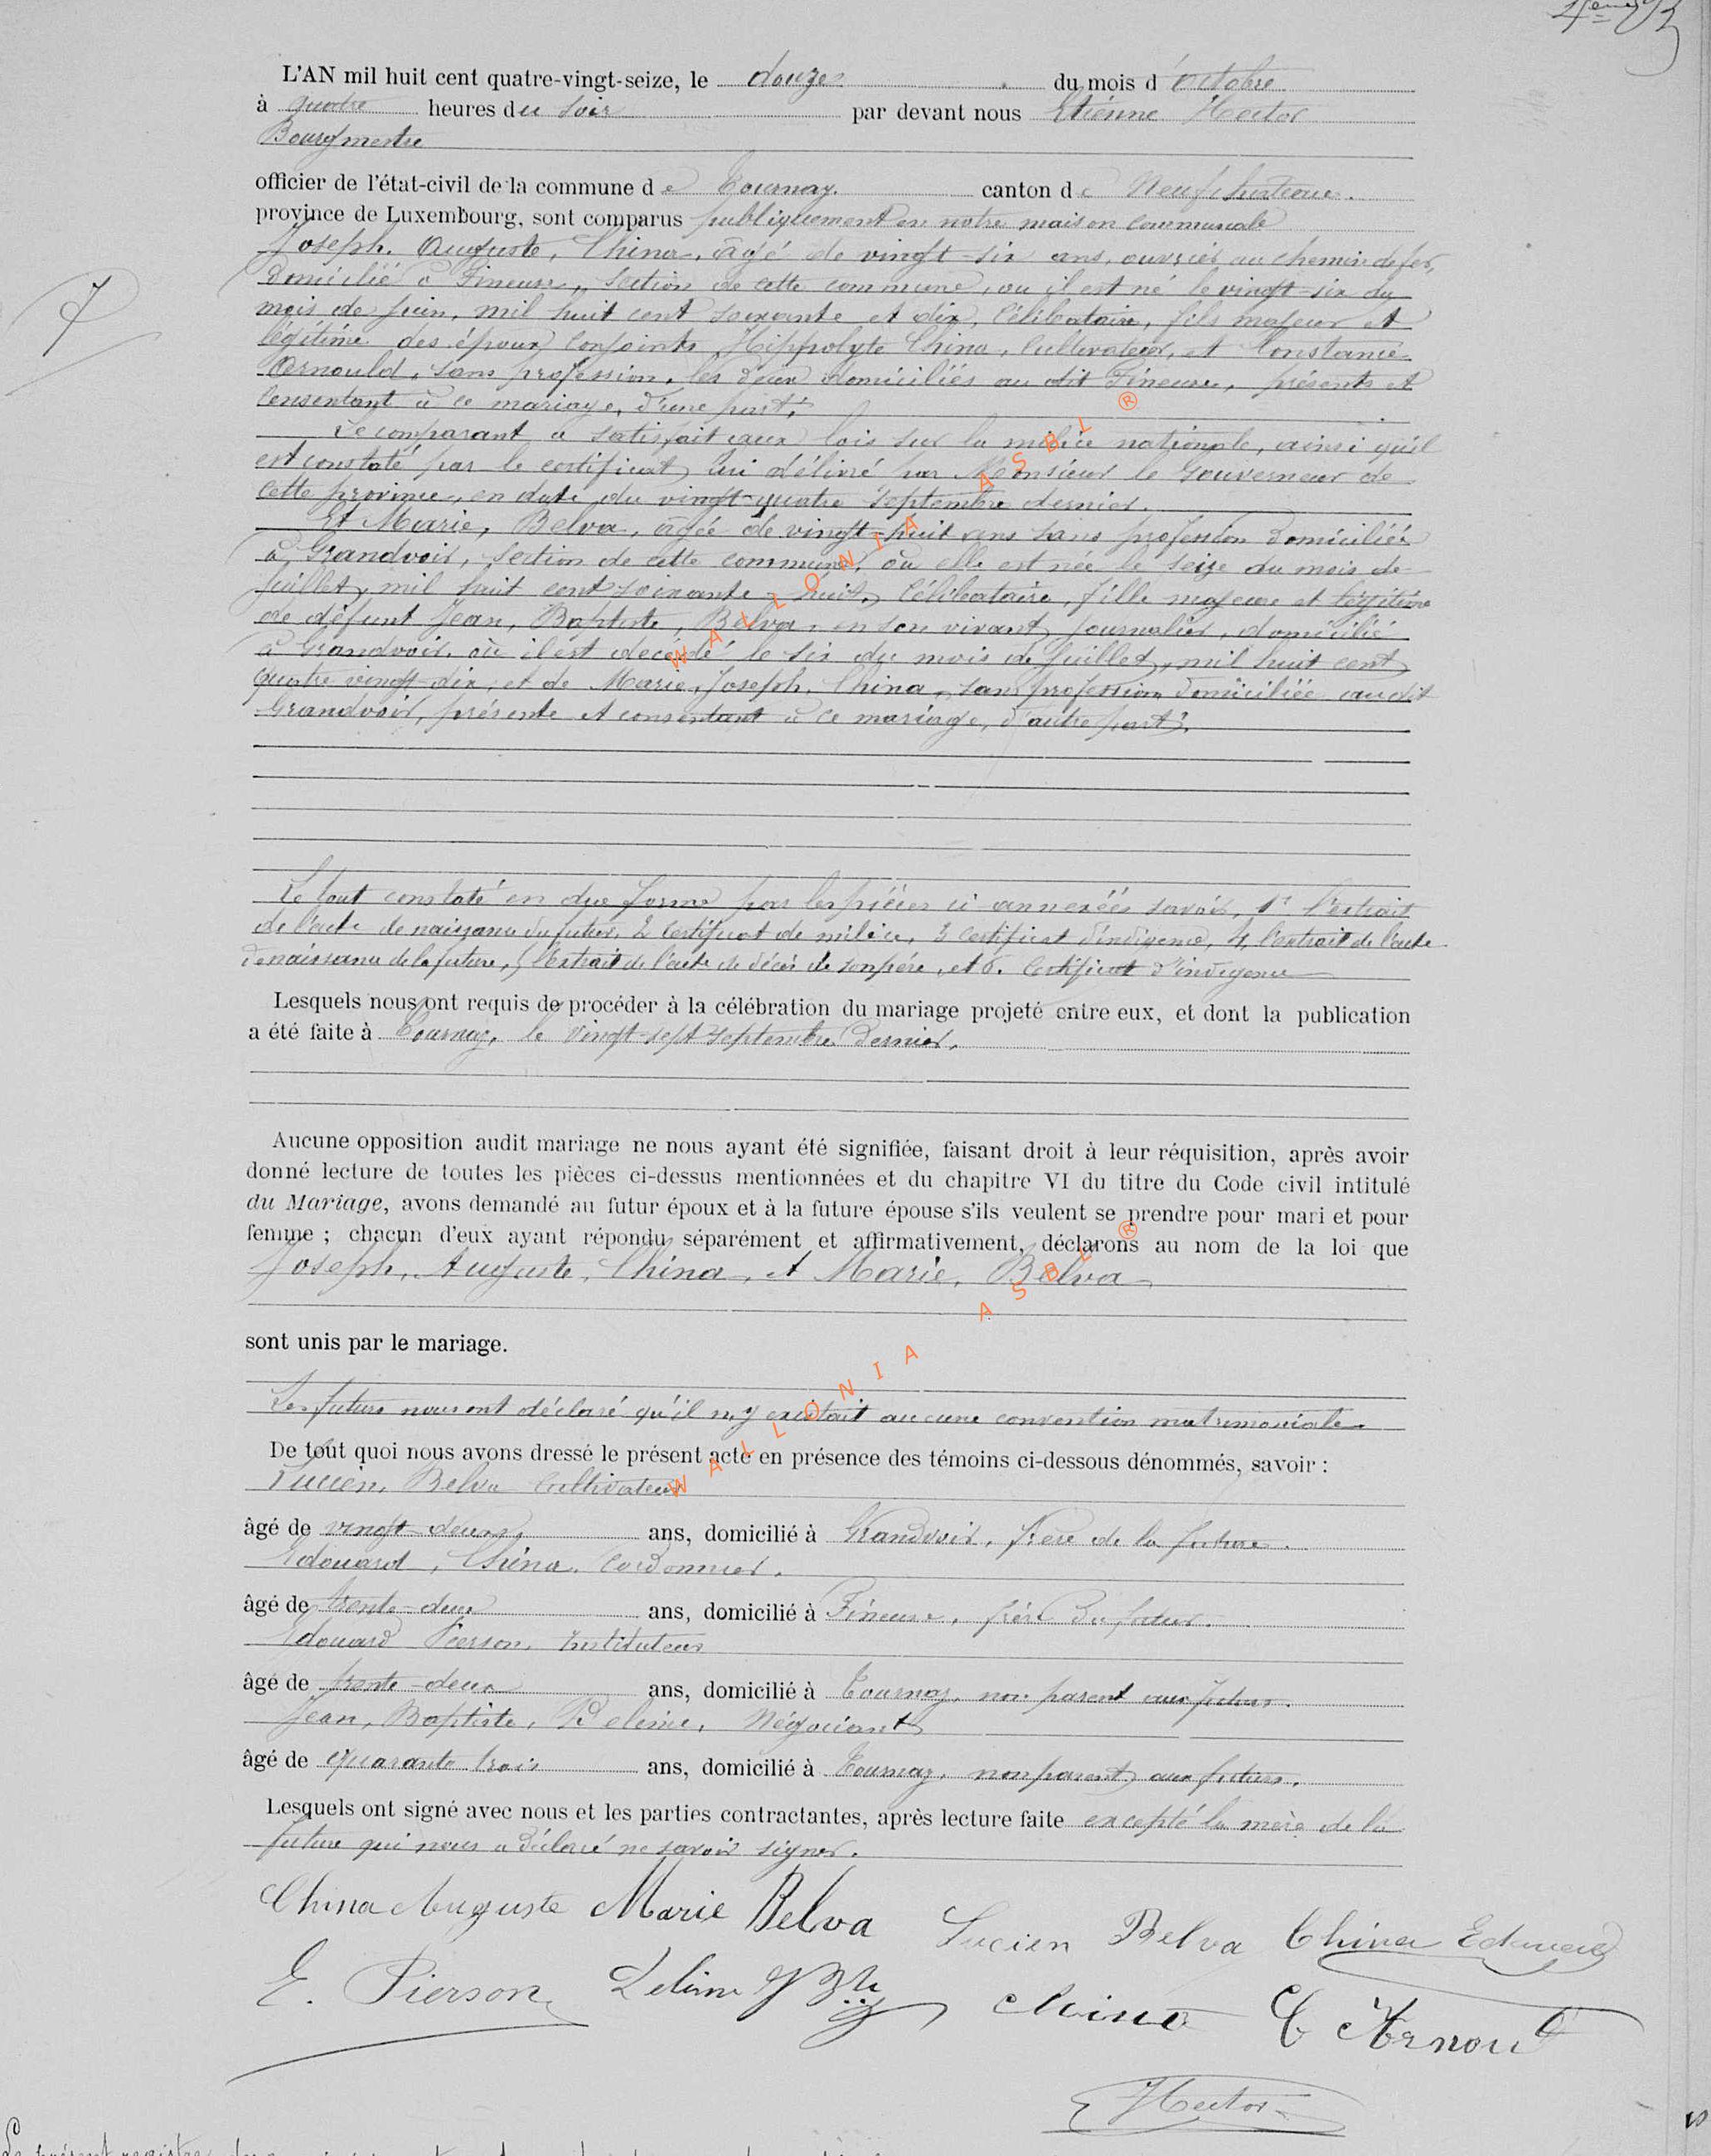 L'AN mil huit cent quatre-vingt-seize, le douze du mois d'octobre
à quatre heures du soir par devant nous Etienne Hector
Bourgmestre
officier de l'état-civil de la commune de Tournay. canton de Neufchateau.
province de Luxembourg, sont comparus publiquement en notre maison communale
Joseph, Auguste, China, âgé de vingt-six ans, ouvrier au chemin de fer,
domicilié à Fineuse, section de cette commune, ou il est né le vingt-six du
mois de juin, mil huit cent soixante et dix, célibataire, fils majeur et
légitime des époux conjoints Hippolyte China, cultivateur, et Constance
Arnould, sans profession, les deux domiciliés au dit Fineuse, présents et
consentant à ce mariage, d'une part;
Le comparant a satisfait aux lois sur la milice nationale, ainsi qu'il
est constaté par le certificat lui délivré par Monsieur le Gouverneur de
cette province, en date du vingt-quatre septembre dernier.
Et Marie, Belva, âgée de vingt-huit ans sans profession domiciliée
à Grandvoir, section de cette commune, où elle est née le seize du mois de
juillet, mil huit cent soixante-huit, célibataire, fille majeure et légitime
de défunt Jean, Baptiste, Belva, en son vivant, journalier, domicilié
à Grandvoir où il est décédé le six du mois de juillet, mil huit cent
quatre vingt-dix, et de Marie, Joseph, China, sans profession domiciliée audit
Grandvoir, présente et consentant à ce mariage, d'autre part;
Le tout constaté en due forme par les pièces ci annexées savoir, 1° l'extrait
de l'acte de naissance du futur, 2 certificat de milice, 3 certificat d'indigence, 4, l'extrait de l'acte
de naissance de la future, 5 l'extrait de l'acte de décès de son père, et 6. certificat d'indigence
Lesquels nous ont requis de procéder à la célébration du mariage projeté entre eux, et dont la publication
a été faite à Tournay, le vingt-sept septembre dernier.
Aucune opposition audit mariage ne nous ayant été signifiée, faisant droit à leur réquisition, après avoir
donné lecture de toutes les pièces ci-dessus mentionnées et du chapitre VI du titre du Code civil intitulé
du Mariage, avons demandé au futur époux et à la future épouse s'ils veulent se prendre pour mari et pour
femme ; chacun d'eux ayant répondu séparément et affirmativement, déclarons au nom de la loi que
Joseph, Auguste, China, et Marie, Belva
sont unis par le mariage.
Les futurs nous ont déclaré qu'il n'y existait aucune convention matrimoniale.
De tout quoi nous avons dressé le présent acte en présence des témoins ci-dessous dénommés, savoir :
Lucien, Belva cultivateur
âgé de vingt-deux ans, domicilié à Grandvoir, frère de la future.
Edouard, China, cordonnier.
âgé de trente-deux ans, domicilié à Fineuse, frère du futur.
Edouard Pierson, Instituteur
âgé de trente-deux ans, domicilié à Tournay, non parent aux futurs.
Jean, Baptiste, Négociant
âgé de quarante trois ans, domicilié à Tournay, non parent aux futurs.
Lesquels ont signé avec nous et les parties contractantes, après lecture faite excepté la mère de la
future qui nous a déclaré ne savoir signer.
China Auguste Marie Belva Lucien Belva China Edouard
E. Pierson China C Arnould
Hector
WALLONIA ASBL ®
WALLONIA ASBL ®